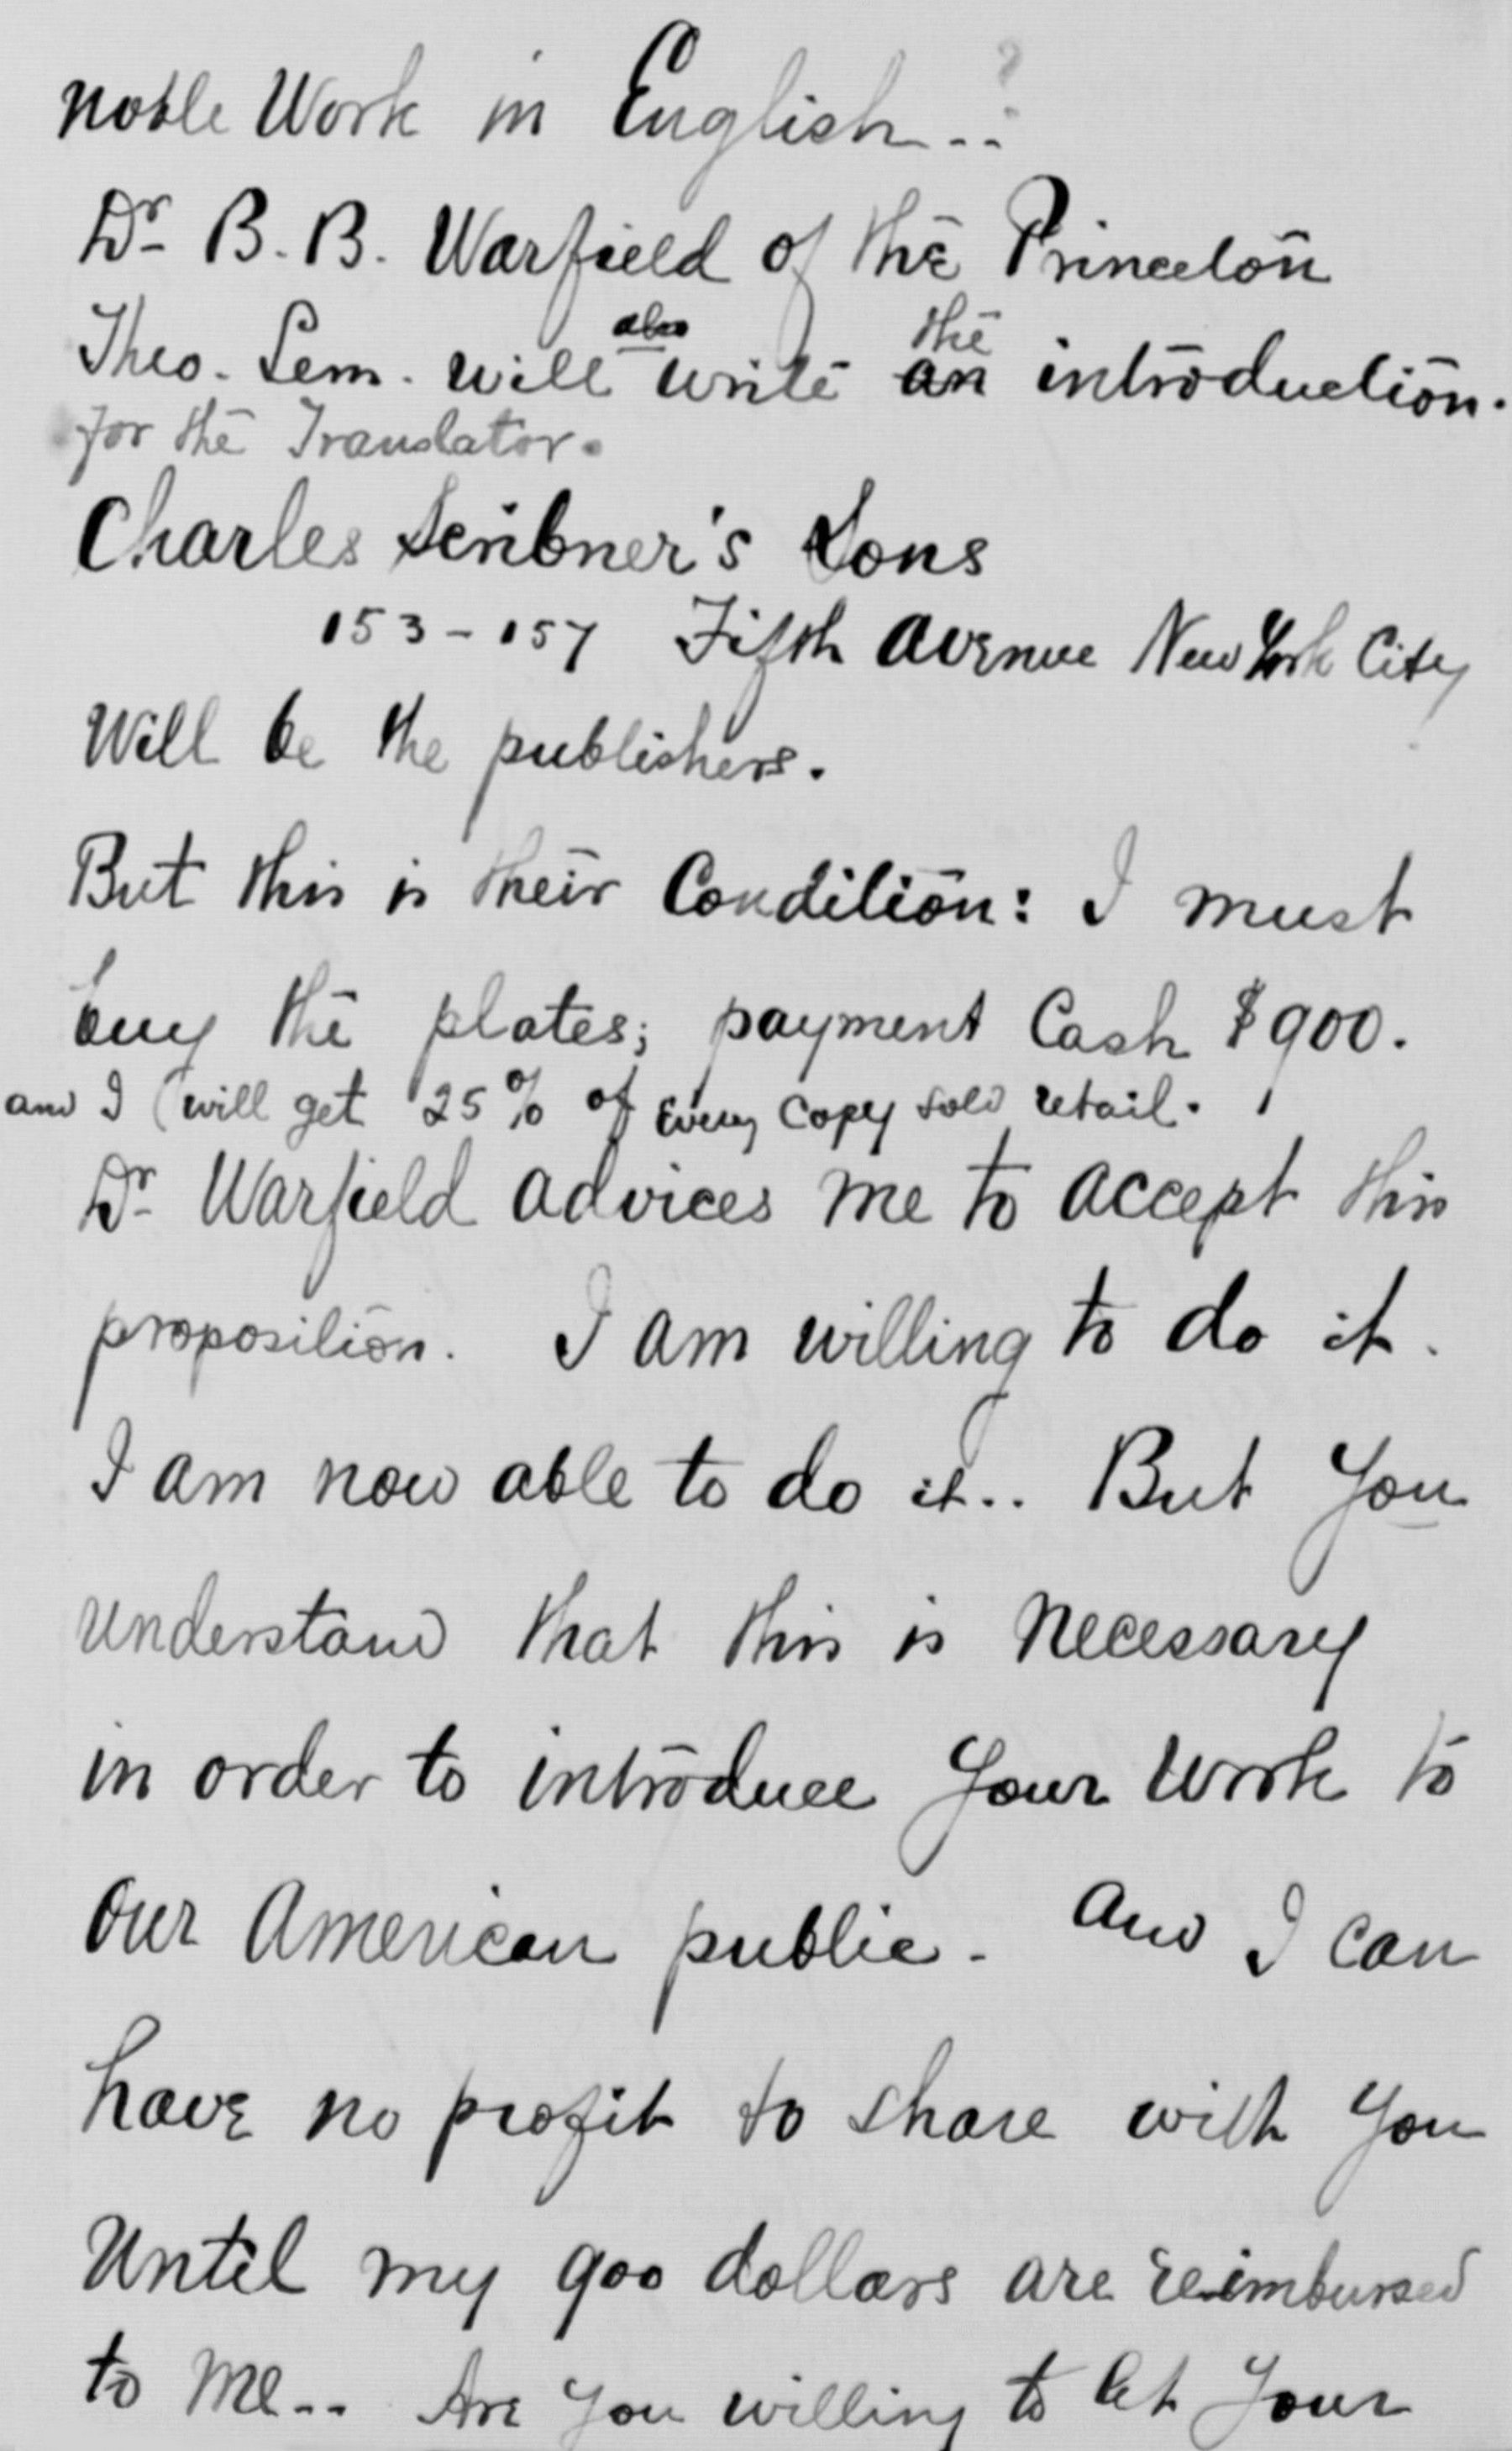 noble Work in English..?
Dr B. B. Warfield of the Princeton
Theo. Sem. will also write an the introduction.
for the Translator.
Charles Scribner's Sons
153-157 Fifth Avenue New York City
Will be the publishers.
But this is their Condition: I must
buy the plates; payment Cash $900.
and I (will get 25% of Every Copy sold retail.
Dr Warfield advices me to accept this
proposition. I am willing to do it.
I am now able to do it.. But You
understand that this is necessary
in order to introduce Your Work to
Our American public. And I can
have no profit to share with You
Until my 900 dollars are reimbursed
to me.. Are You willing to let Your